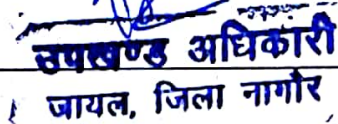 उपखण्ड अधिकारी
जायल, जिला नागौर